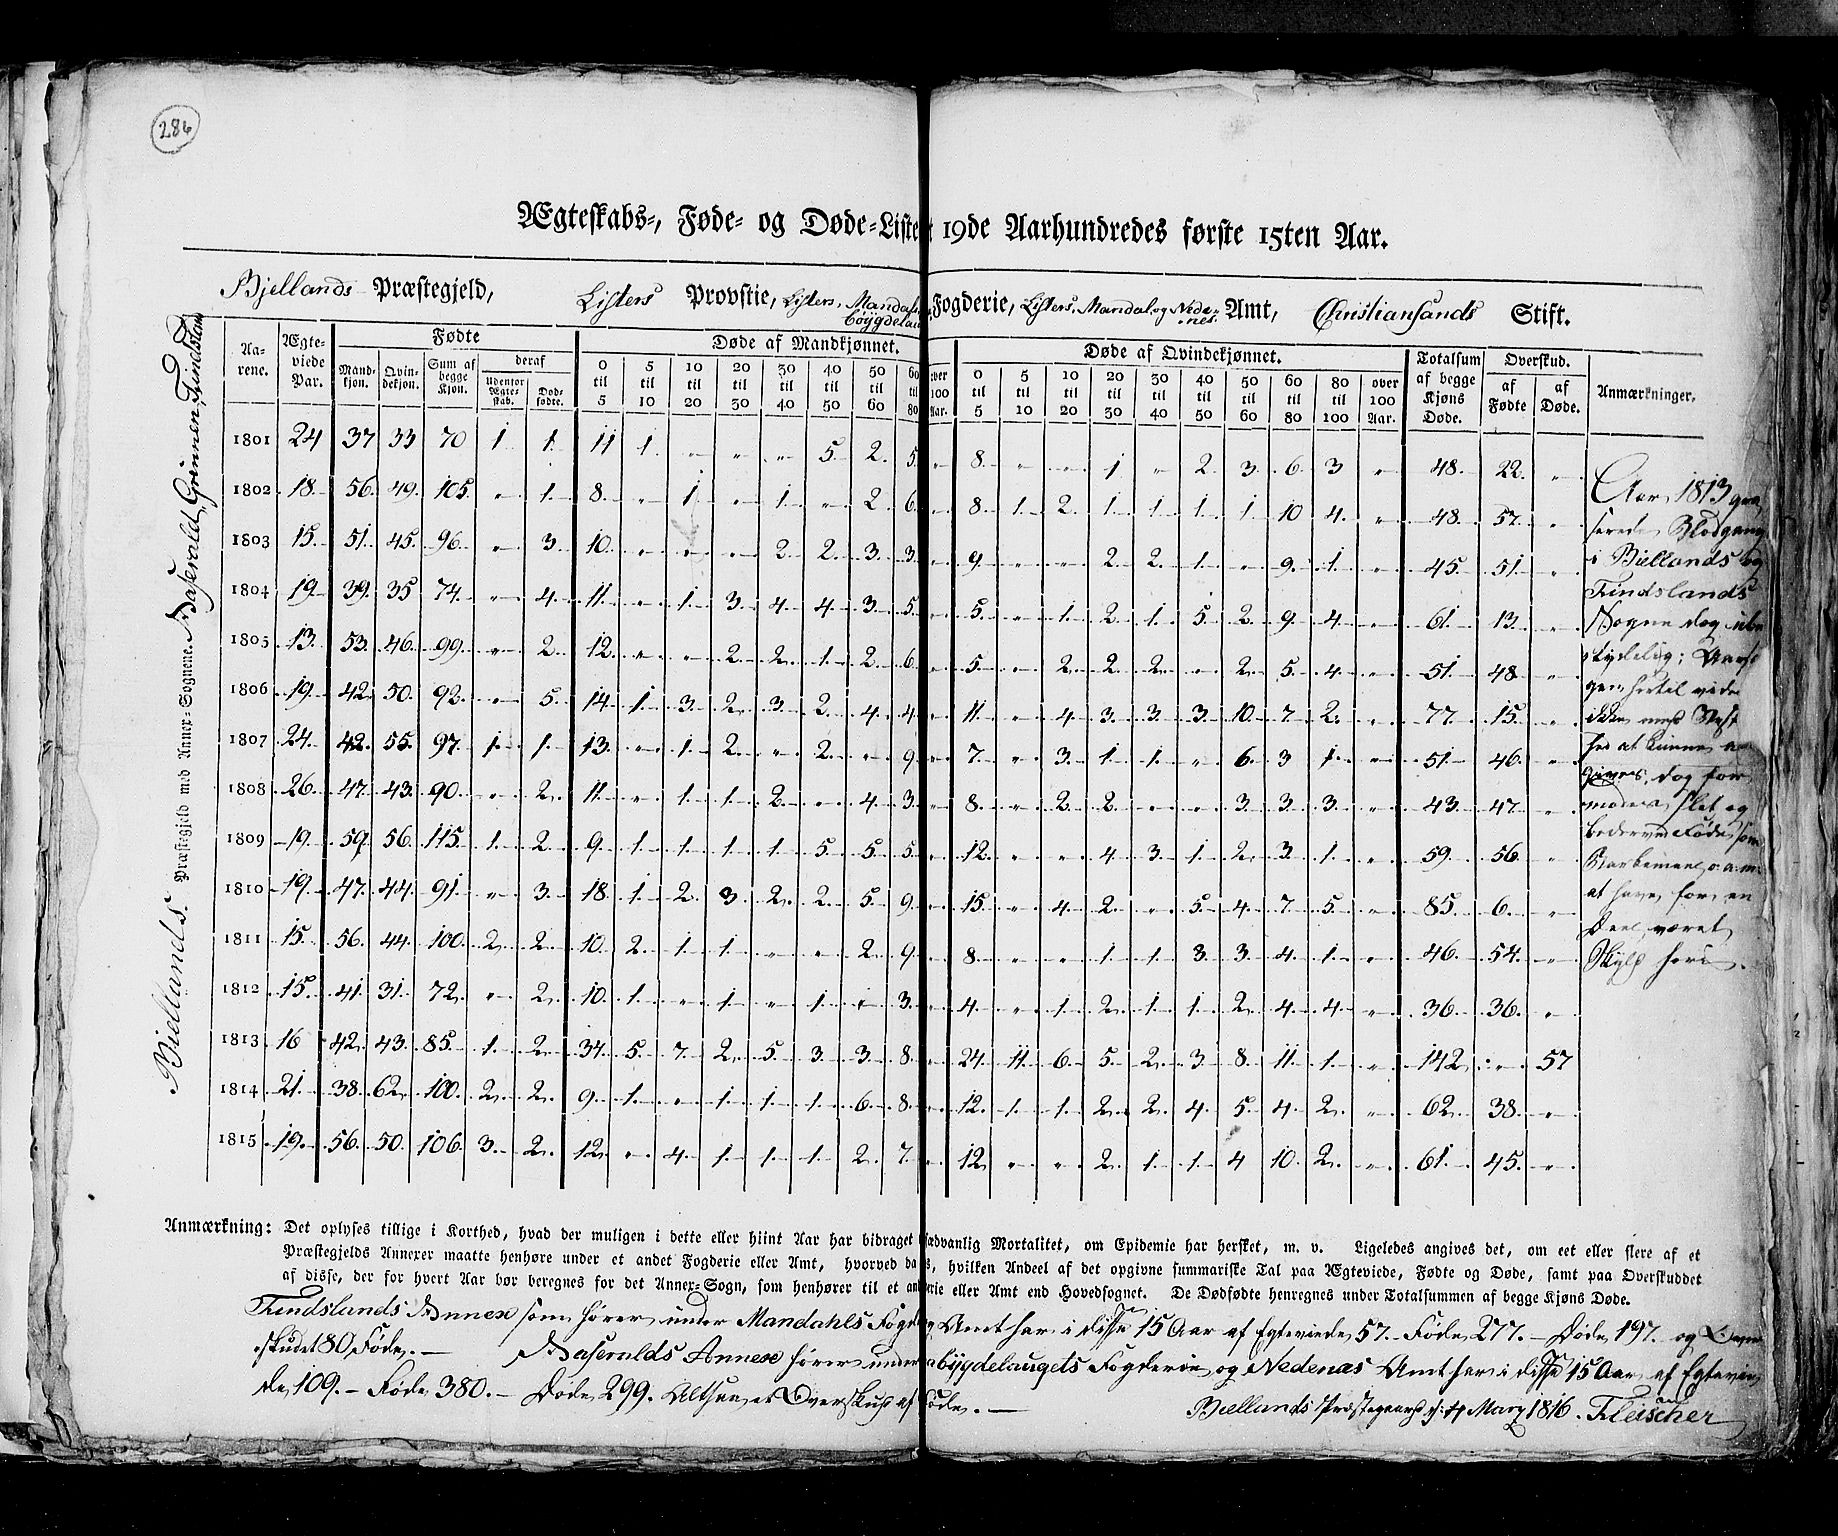 286
Ægteskabs-, Føde- og Døde-Liste 19de Aarhundredes første 15ten Aar.
Bjellands Præstegjeld, Listers Provstie, Listers, Mandals Fogderie, Listers, Mandal og Nede- Amt, Christiansands Stift.
Bjellands Præstegjeld med Annex-Sognene Aaserald, Grinmen, Findsland
Aarene. Ægteviede Par. Fødte Døde af Mandkjønnet. Døde af Qvindekjønnet. Totalsum af begge Kjøns Døde. Overskud. Anmærkninger.
Mandkjøn. Qvindekjøn. Sum af begge Kjøn. deraf af Fødte af Døde.
Udentor Ægteskab. Dødfødte. 0 til 5 5 til 10 10 til 20 20 til 30 30 til 40 40 til 50 50 til 60 60 til 80 over 100 Aar. 0 til 5 5 til 10 10 til 20 20 til 30 30 til 40 40 til 50 50 til 60 60 til 80 80 til 100 over 100 Aar.
1801 24 37 33 70 1 1 11 1 " " " 5 2 5 " 8 " " 1 " 2 3 6 3 " 48 22 "
1802 18 56 49 105 " 1 8 " 1 " 1 " 2 6 " 8 1 2 1 1 1 1 10 4 " 48 57 "
1803 15 51 45 96 " 3 10 " " " 2 2 3 3 " 9 " " 2 2 1 " 9 1 " 45 51 "
1804 19 39 35 74 " 4 11 " 1 3 4 4 3 5 " 5 " 1 2 1 5 2 9 4 " 61 13 "
1805 13 53 46 99 " 2 12 " " 2 2 1 2 6 " 5 " 2 2 2 " 2 5 4 " 51 48 "
1806 19 42 50 92 " 5 14 1 3 2 3 2 4 4 " 11 " 4 3 3 3 10 7 2 " 77 15 "
1807 24 42 55 97 1 1 13 " 1 2 " 2 " 9 " 7 " 3 1 1 " 6 3 1 " 51 46 "
1808 26 47 43 90 " 2 11 " 1 1 2 " 4 3 " 8 " 2 2 " " 3 3 3 " 43 47 "
1809 19 59 56 115 1 2 9 1 1 1 1 5 5 5 " 12 " " 4 3 1 2 3 1 " 59 56 "
1810 19 47 44 91 " 3 18 1 2 3 2 2 5 9 " 15 " 4 2 " 5 4 7 5 " 85 6 "
1811 15 56 44 100 2 2 10 2 1 1 " " 2 9 " 8 " " 1 1 3 3 4 1 " 46 54 "
1812 15 41 31 72 " 2 10 1 " 1 " 1 " 3 " 4 " 1 2 1 1 2 4 4 " 36 36 "
1813 16 42 43 85 1 2 34 5 7 2 5 3 3 8 " 24 11 6 5 2 3 8 11 1 " 142 " 57
1814 21 38 62 100 2 2 9 1 " 1 1 1 6 8 " 12 1 1 2 2 4 5 4 2 " 62 38 "
1815 19 56 50 106 3 2 12 " 4 1 1 1 2 7 " 12 " " 2 1 1 4 10 2 " 61 45 "
Aar 1813 gra
serede Blodgang
i Bjellands og
Findslands
Sogne dog ube
tydelig; Aarsa
gen hertil vides
ikke med Vished
at kunne an
gives, dog for
modes slet og
bedærvet Føde, som
Barkemeel o.a.m.
at have for en
Deel været
Skyld heri.
Anmærkning: Det oplyses tillige i Korthed, hvad der muligen i dette eller hiint Aar har bidraget sædvanlig Mortalitet, om Epidemie har hersket, m. v. Ligeledes angives det, om eet eller flere af et
Præstegjelds Annexer maatte henhøre under et andet Fogderie eller Amt, hvorved da s, hvilken Andeel af det opgivne summariske Tal paa Ægteviede, Fødte og Døde, samt paa Overskuddet
af disse, der for hvert Aar bør beregnes for det Annex-Sogn, som henhører til et an erie eller Amt end Hovedsognet. De Dødfødte henregnes under Totalsummen af begge Kjøns Døde.
Findslands Annex som hører under Mandahls Fogd Amt har i disse 15 Aar af Egteviede 57.- Føde 277.- Døde 197. og Over
skudet 80 Føde.- Aaseralds Annex hører under bøygdelaugets Fogderie og Nedenæs Amt har i disse 15 Aar af Egtevie
de 109.- Føde 380.- Døde 299. Altsaa et Overskud af Føde.-
Bjellands Præstegaard d: 4 Marz 1816. Fleischer